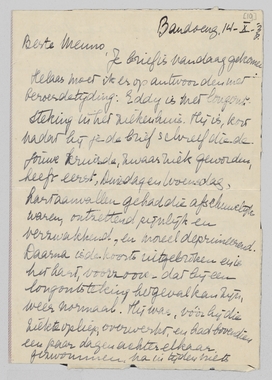 Bandoeng, 14-X
Beste Menno,
Je brief is vandaag gekomen
Helaas moet ik erop antwoorden met
Eddy is met longont-
steking in het ziekenhuis. Hij is, kort
nadat hij je de brief schreef die de
jouwe kruiste, zwaar ziek geworden,
heeft eerst, Dinsdag en Woensdag,
hartaanvallen gehad die afschuwelijk
waren, ontzettend pijnlijk en
verzwakkend, en moreel deprimeerend.
Daarna is de koorts uitgebroken en is
het hart, voorzoover dat bij een
longontsteking het geval kan zijn,
weer normaal. Hij was, vóór hij die
ziekte opliep, overwerkt en had bovendien
een paar dagen achter elkaar
gezwommen, na in tijden niets